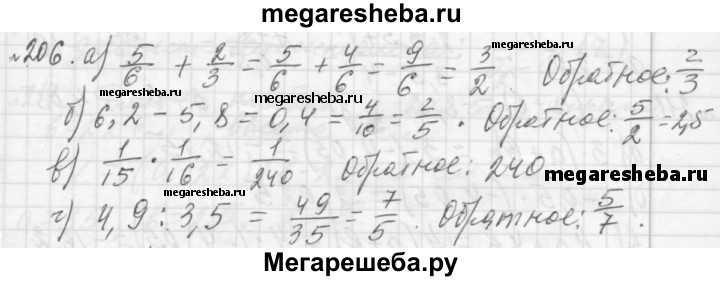 megaresheba.ru
№206. а) 5/6 + 2/3 = 5/6 + 4/6 = 9/6 = 3/2. Обратное: 2/3
megaresheba.ru
megaresheba.ru
б) 6,2 - 5,8 = 0,4 = 4/10 = 2/5. Обратное: 5/2 = 2,5
в) 1/15 · 1/16 = 1/240 Обратное: 240
megaresheba.ru
megaresheba.ru
г) 4,9 : 3,5 = 49/35 = 7/5. Обратное: 5/7.
Мегарешеба.ру